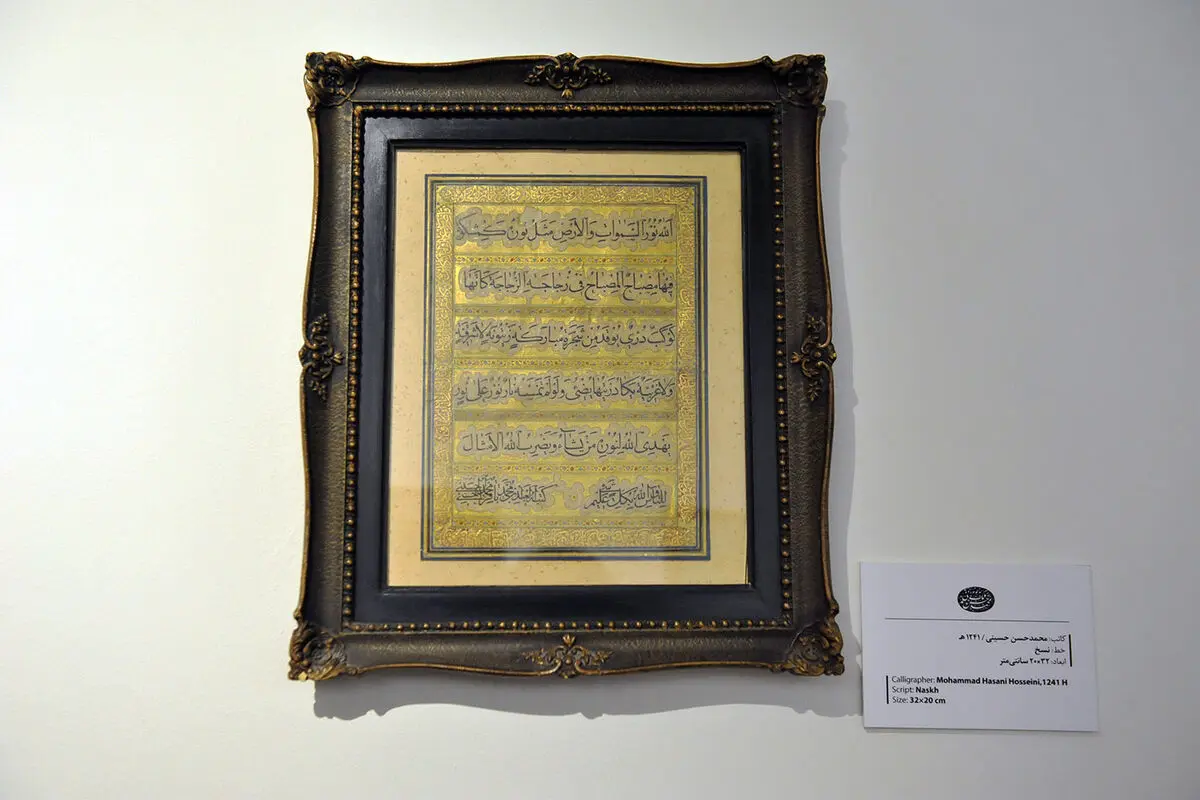 الله نُورُ السَّمٰوَاتِ وَالْأَرْضِ مَثَلُ نُورِهِ كَمِشْكٰوةٍ
فِيهَا مِصْبَاحٌ الْمِصْبَاحُ فِي زُجَاجَةٍ الزُّجَاجَةُ كَأَنَّهَا
كَوْكَبٌ دُرِّيٌّ يُوقَدُ مِنْ شَجَرَةٍ مُبَارَكَةٍ زَيْتُونَةٍ لَا شَرْقِيَّةٍ
وَلَا غَرْبِيَّةٍ يَكَادُ زَيْتُهَا يُضِيءُ وَلَوْ لَمْ تَمْسَسْهُ نَارٌ نُورٌ عَلَى نُورٍ
يَهْدِي اللهُ لِنُورِهِ مَنْ يَشَاءُ وَيَضْرِبُ اللهُ الْأَمْثَالَ
لِلنَّاسِ وَاللهُ بِكُلِّ شَيْءٍ عَلِيمٌ
کاتب: محمدحسن حسینی / ۱۲۴۱ هـ
خط: نسخ
ابعاد: ۳۲×۲۰ سانتی‌متر
Calligrapher: Mohammad Hasani Hosseini,1241 H
Script: Naskh
Size: 32×20 cm